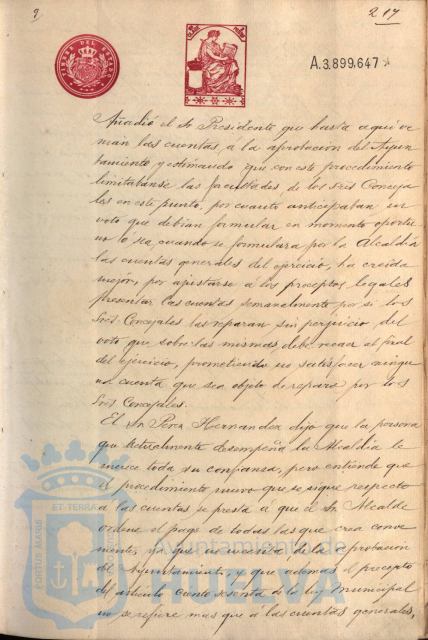 9
217
TIMBRE DEL ESTADO
A.3.899.647
Añadió el Sr Presidente que hasta aqui ve
nian las cuentas á la aprobacion del Ayun
tamiento y estimando que con este procedimiento
limitabanse las facultades de los Sres Conceja
les en este punto, por cuanto anticipaban un
voto que debian formular en momento oportu
no ó sea, cuando se formulara por la Alcaldia
las cuentas generales del ejercicio, ha creido
mejor, por ajustarse á los preceptos legales
presentar las cuentas semanalmente por si los
Sres Concejales las reparan sin perjuicio del
voto que sobre las mismas debe recaer al final
del ejercicio, prometiendo no satisfacer ningu
na cuenta que sea objeto de reparo por los
Sres Concejales.
El Sr Pera Hernandez dijo que la persona
que actualmente desempeña la Alcaldia le
merece toda su confianza, pero entiende que
el procedimiento nuevo que se sigue respecto
á las cuentas se presta á que el Sr Alcalde
ordene el pago de todas las que crea conve
niente, ya que no necesita de la aprobacion
del Ayuntamiento y que ademas el precepto
del articulo ciento sesenta de la ley Municipal
no se refiere mas que á las cuentas generales,
PORTUS MARIS
ET TERRAE
Ayuntamiento de
HUELVA